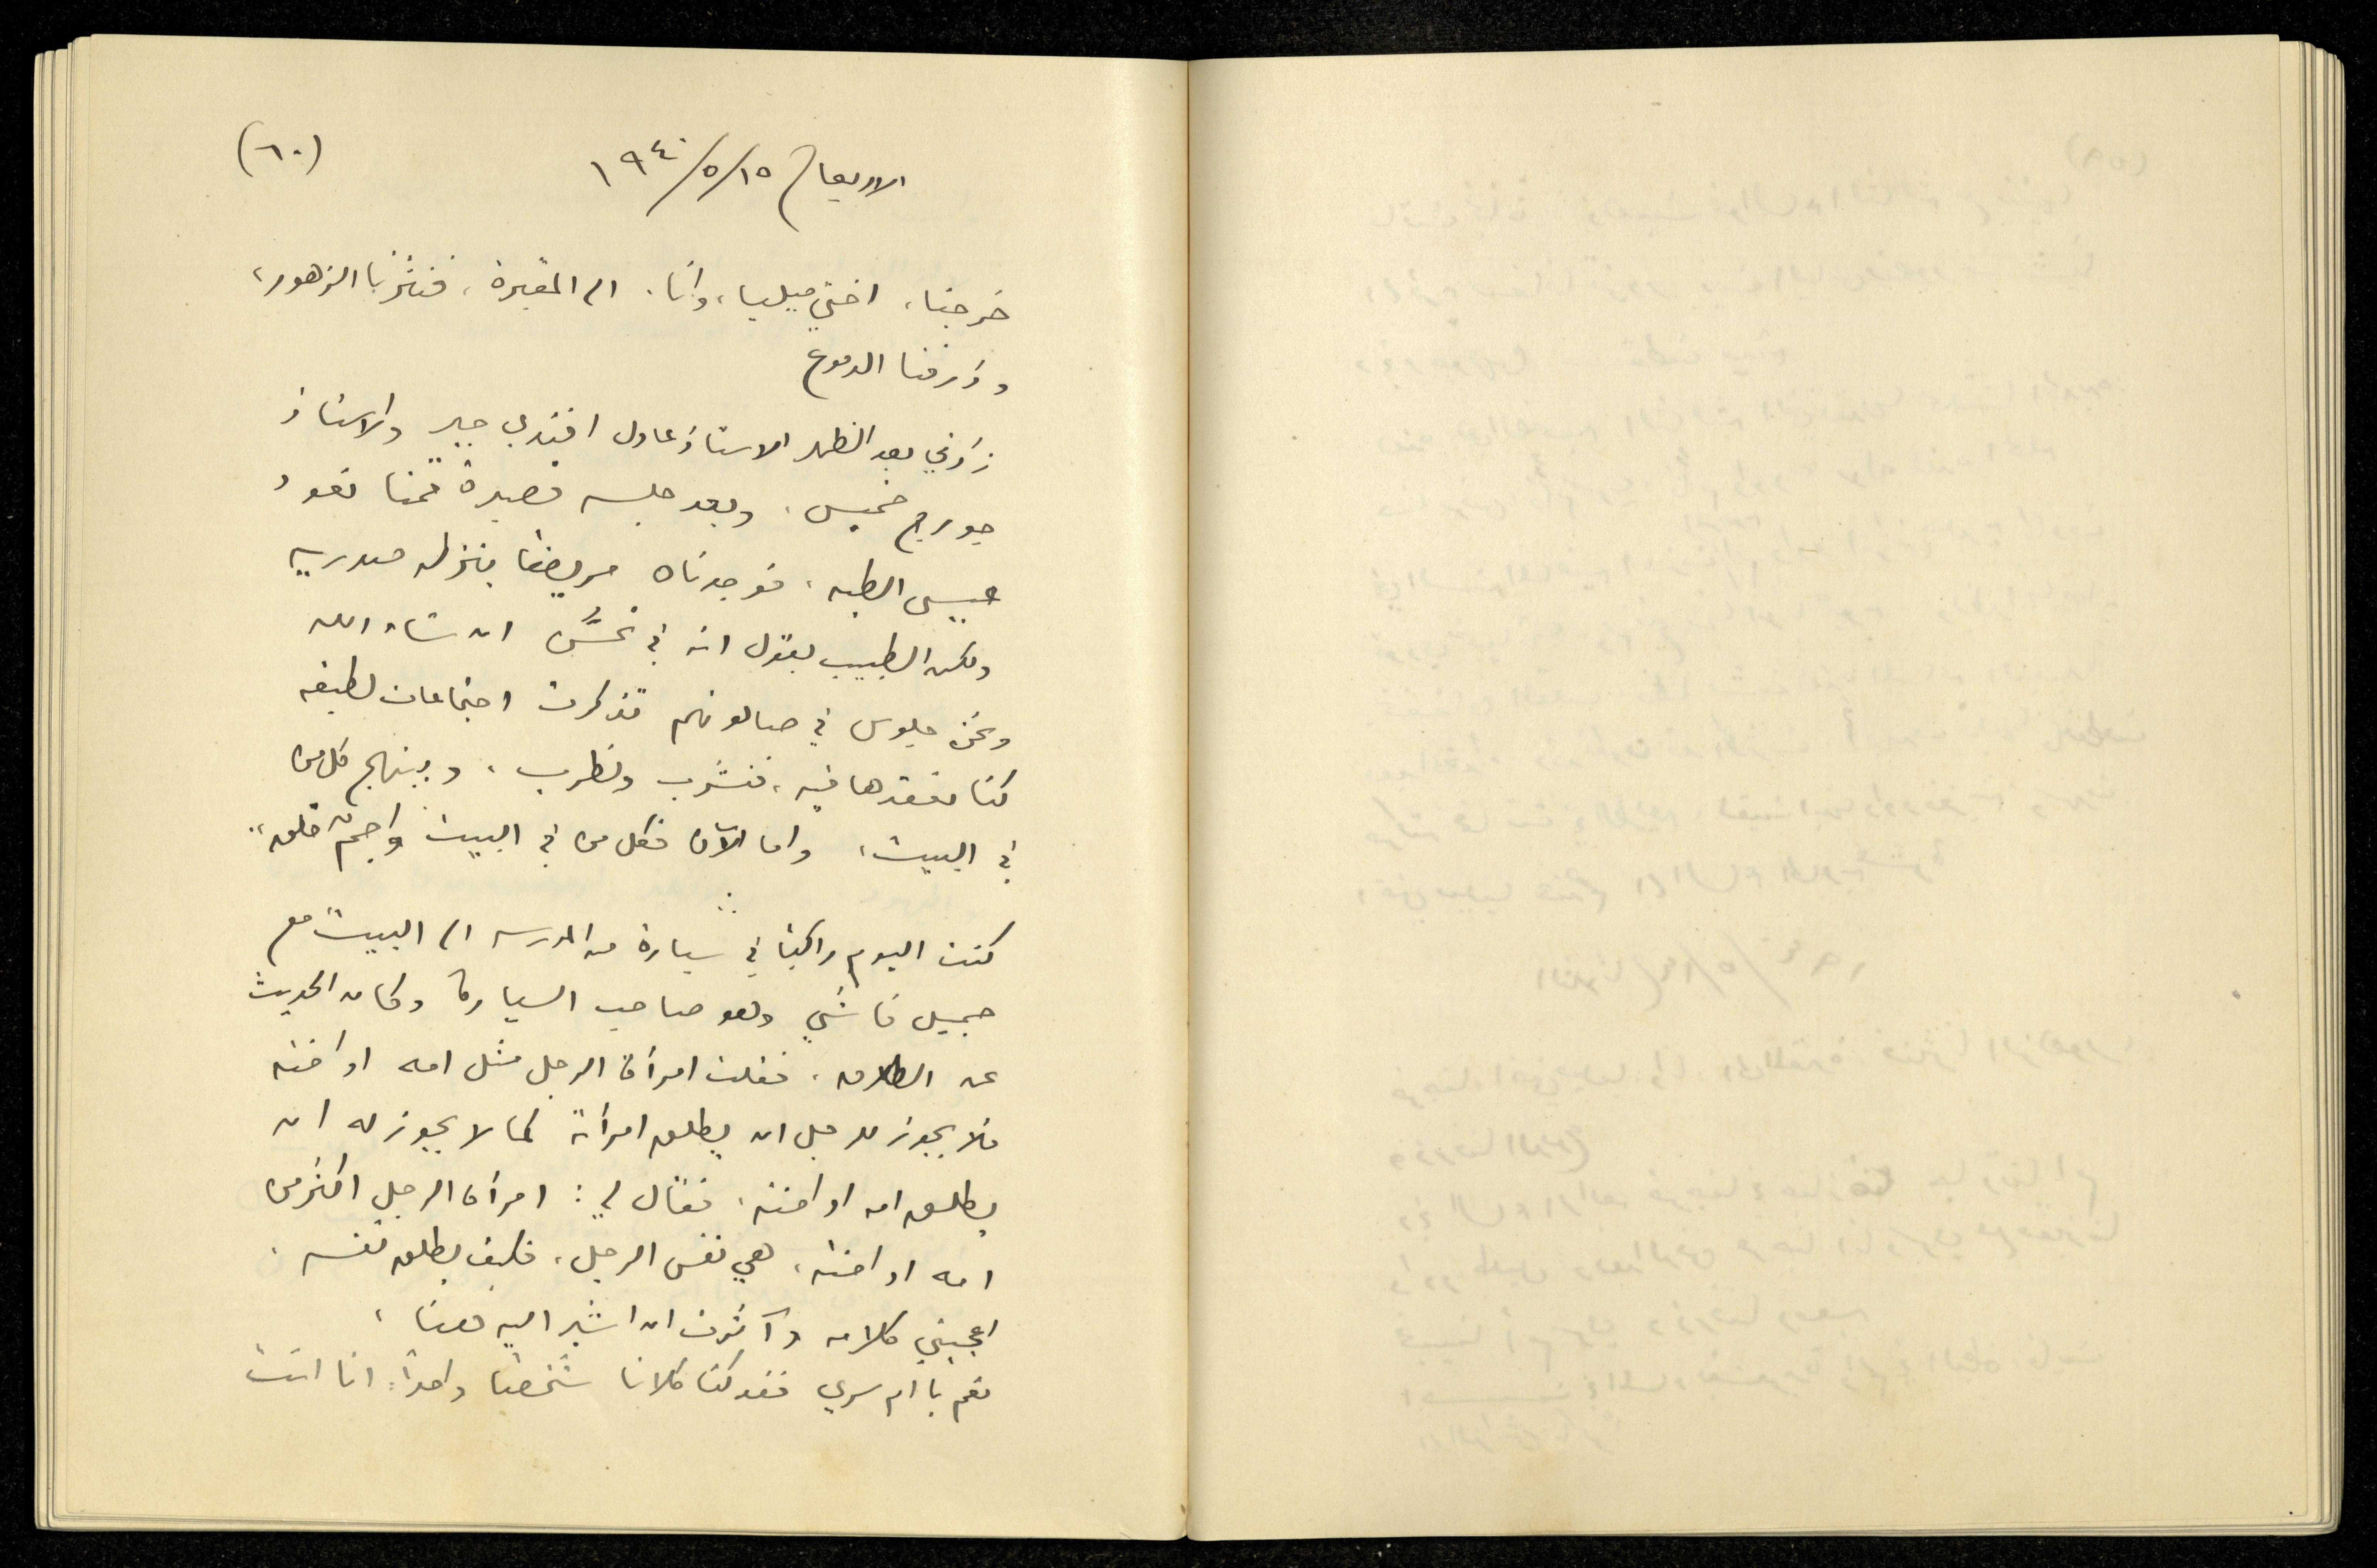 (٦٠)
الاربعاء ١٥/٥/١٩٤٠
خرجنا، اختي ميليا، وانا، الى المقبرة، فنثرنا الزهور،
وذرفنا الدموع
زارني بعد الظهر الاستاذ عادل افندي جبر والاستاذ
جورج خميس، وبعد جلسه قصيرة قمنا نعود
عيسى الطبه، فوجدناه مريضا بنزله صدريه
ولكن الطبيب يقول انه في تحسّن ان شاء الله
ونحن جلوس في صالونهم تذكرت اجتماعات لطيفه
كنا نعقدها فيه، فنشرب ونطرب، ويبتهج كل من
في البيت، واما الآن فكل من في البيت واجمٌ قلق..
كنت اليوم راكبا في سيارة من المدرسه الى البيت مع
جميل قاشي وهو صاحب السيارة وكان الحديث
عن الطلاق، فقلت امرأة الرجل مثل امه او اخته
فلا يجوز للرجل ان يطلق امرأته كما لا يجوز له ان
يطلق امه او اخته، فقال لي: امرأة الرجل اكثر من
امه او اخته، هي نفس الرجل، فكيف يطلق نفسه.
اعجبني كلامه وآثرت ان اشير اليه هنا،
نعم يا ام سري فقد كنا كلانا شخصا واحداً: انا انت